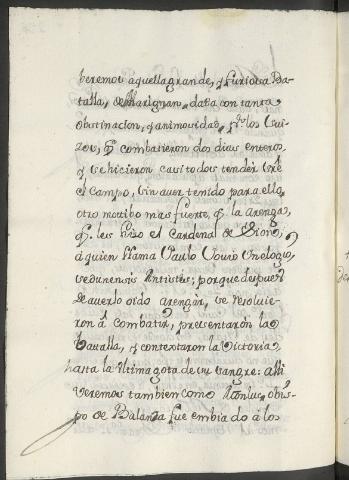 beremos aquella grande, y furiosa Ba-
talla, de Marignan, dada con tanta
obstinacion, y animosidad, q los Sui-
zos, q combatieron dos dias enteros,
y se hicieron casi todos tender sre
el campo, sin aver tenido para ello,
otro motibo mas fuerte, q la arenga,
q les hizo el Cardenal de Sion,
a quien llama Paulo Jovio en elogio,
sedunensis Antistes; porque despues
de averlo oido arengar, se resolvie-
ron á combatir, presentaron la
batalla, y contextaron la Victoria
hasta la ultima gota de su sangre: alli
veremos tambien como obis-
po de Balanza fue embiado á los